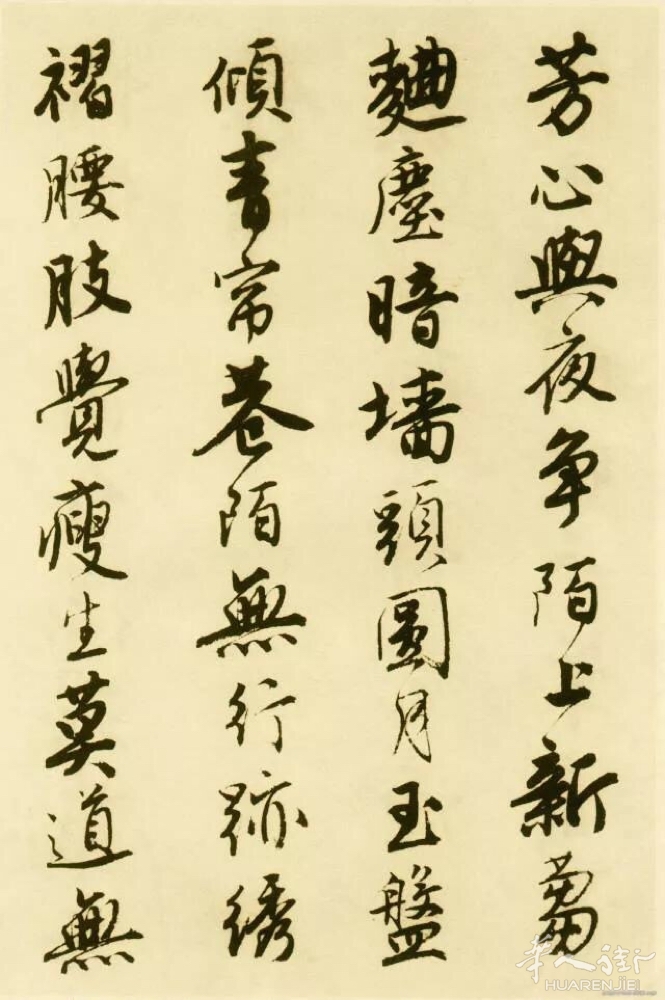 芳心與夜争陌上新蒭
麯塵暗墙頭圓月玉盤
傾青帘巷陌無行跡綉
褶腰肢覺瘦生莫道無
華人街
HUARENJIE